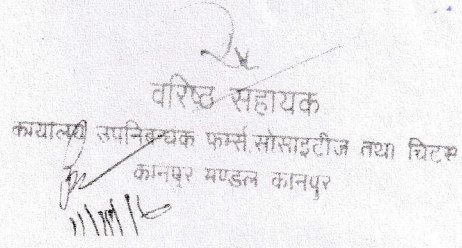 वरिष्ठ सहायक
कार्यालय उपनिबन्धक फर्म्स, सोसाइटीज तथा चिटस
कानपुर मण्डल कानपुर